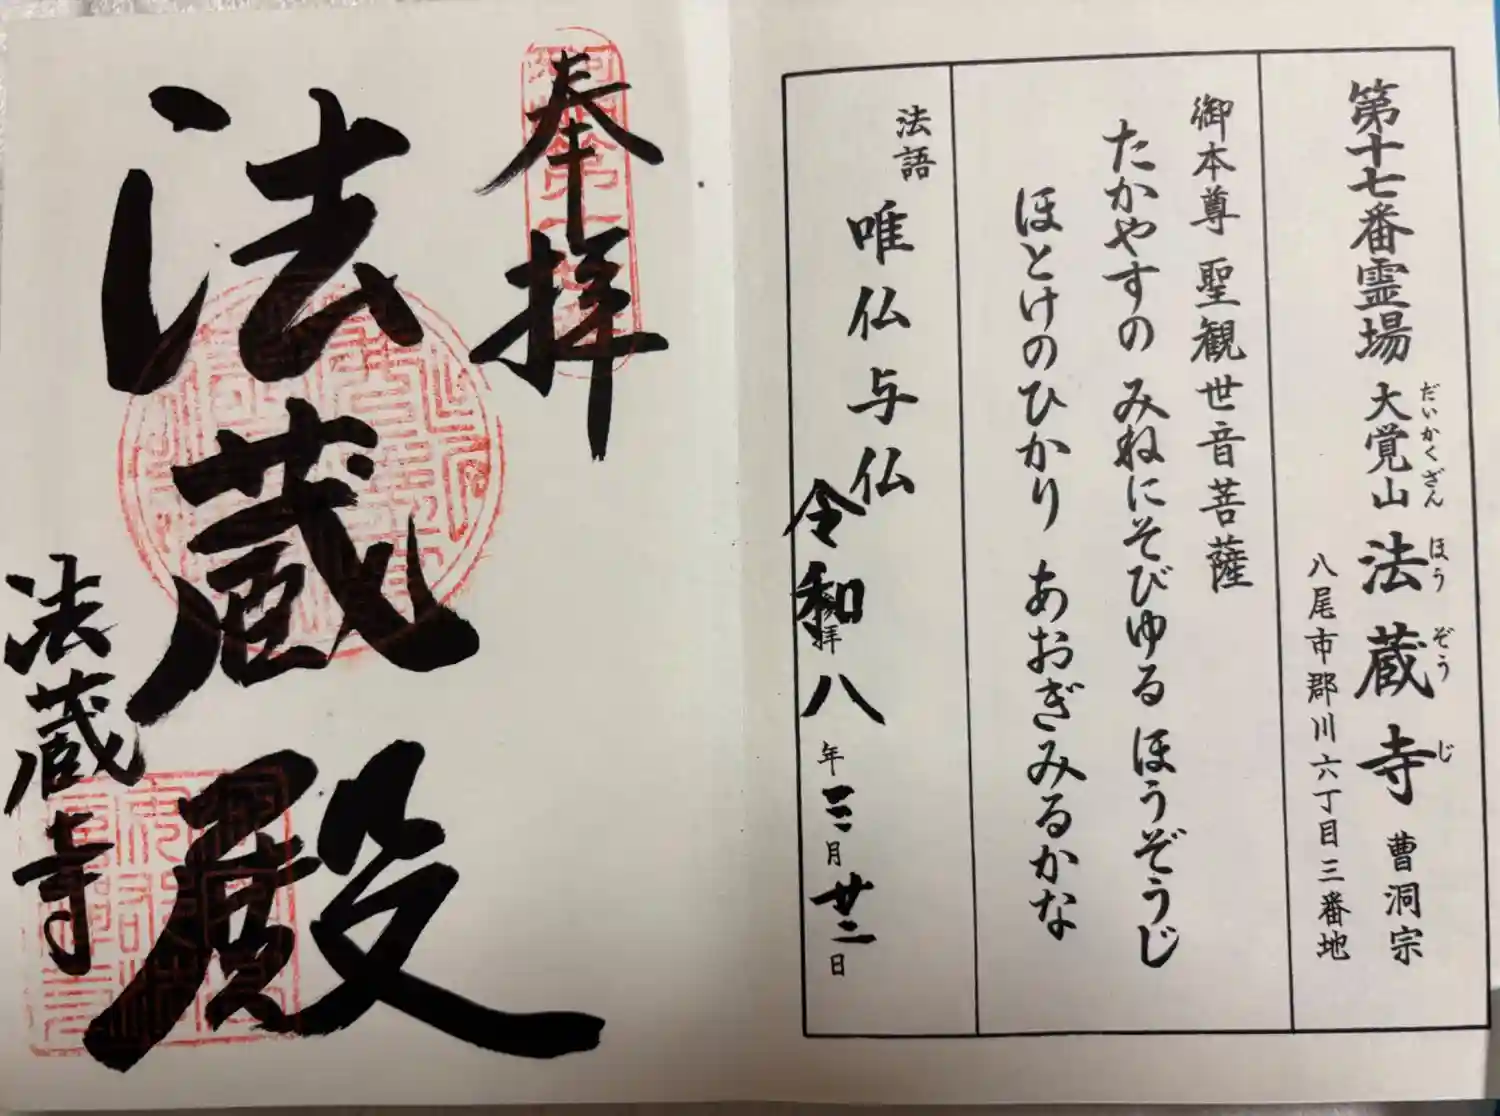 第十七番霊場 大覚山 法蔵寺 曹洞宗
だいかくざん ほうぞうじ
八尾市郡川六丁目三番地
御本尊 聖観世音菩薩
たかやすの みねにそびゆる ほうぞうじ
ほとけのひかり あおぎみるかな
法語
唯仏与仏
令和八年三月廿二日
奉拝
法蔵殿
法蔵寺